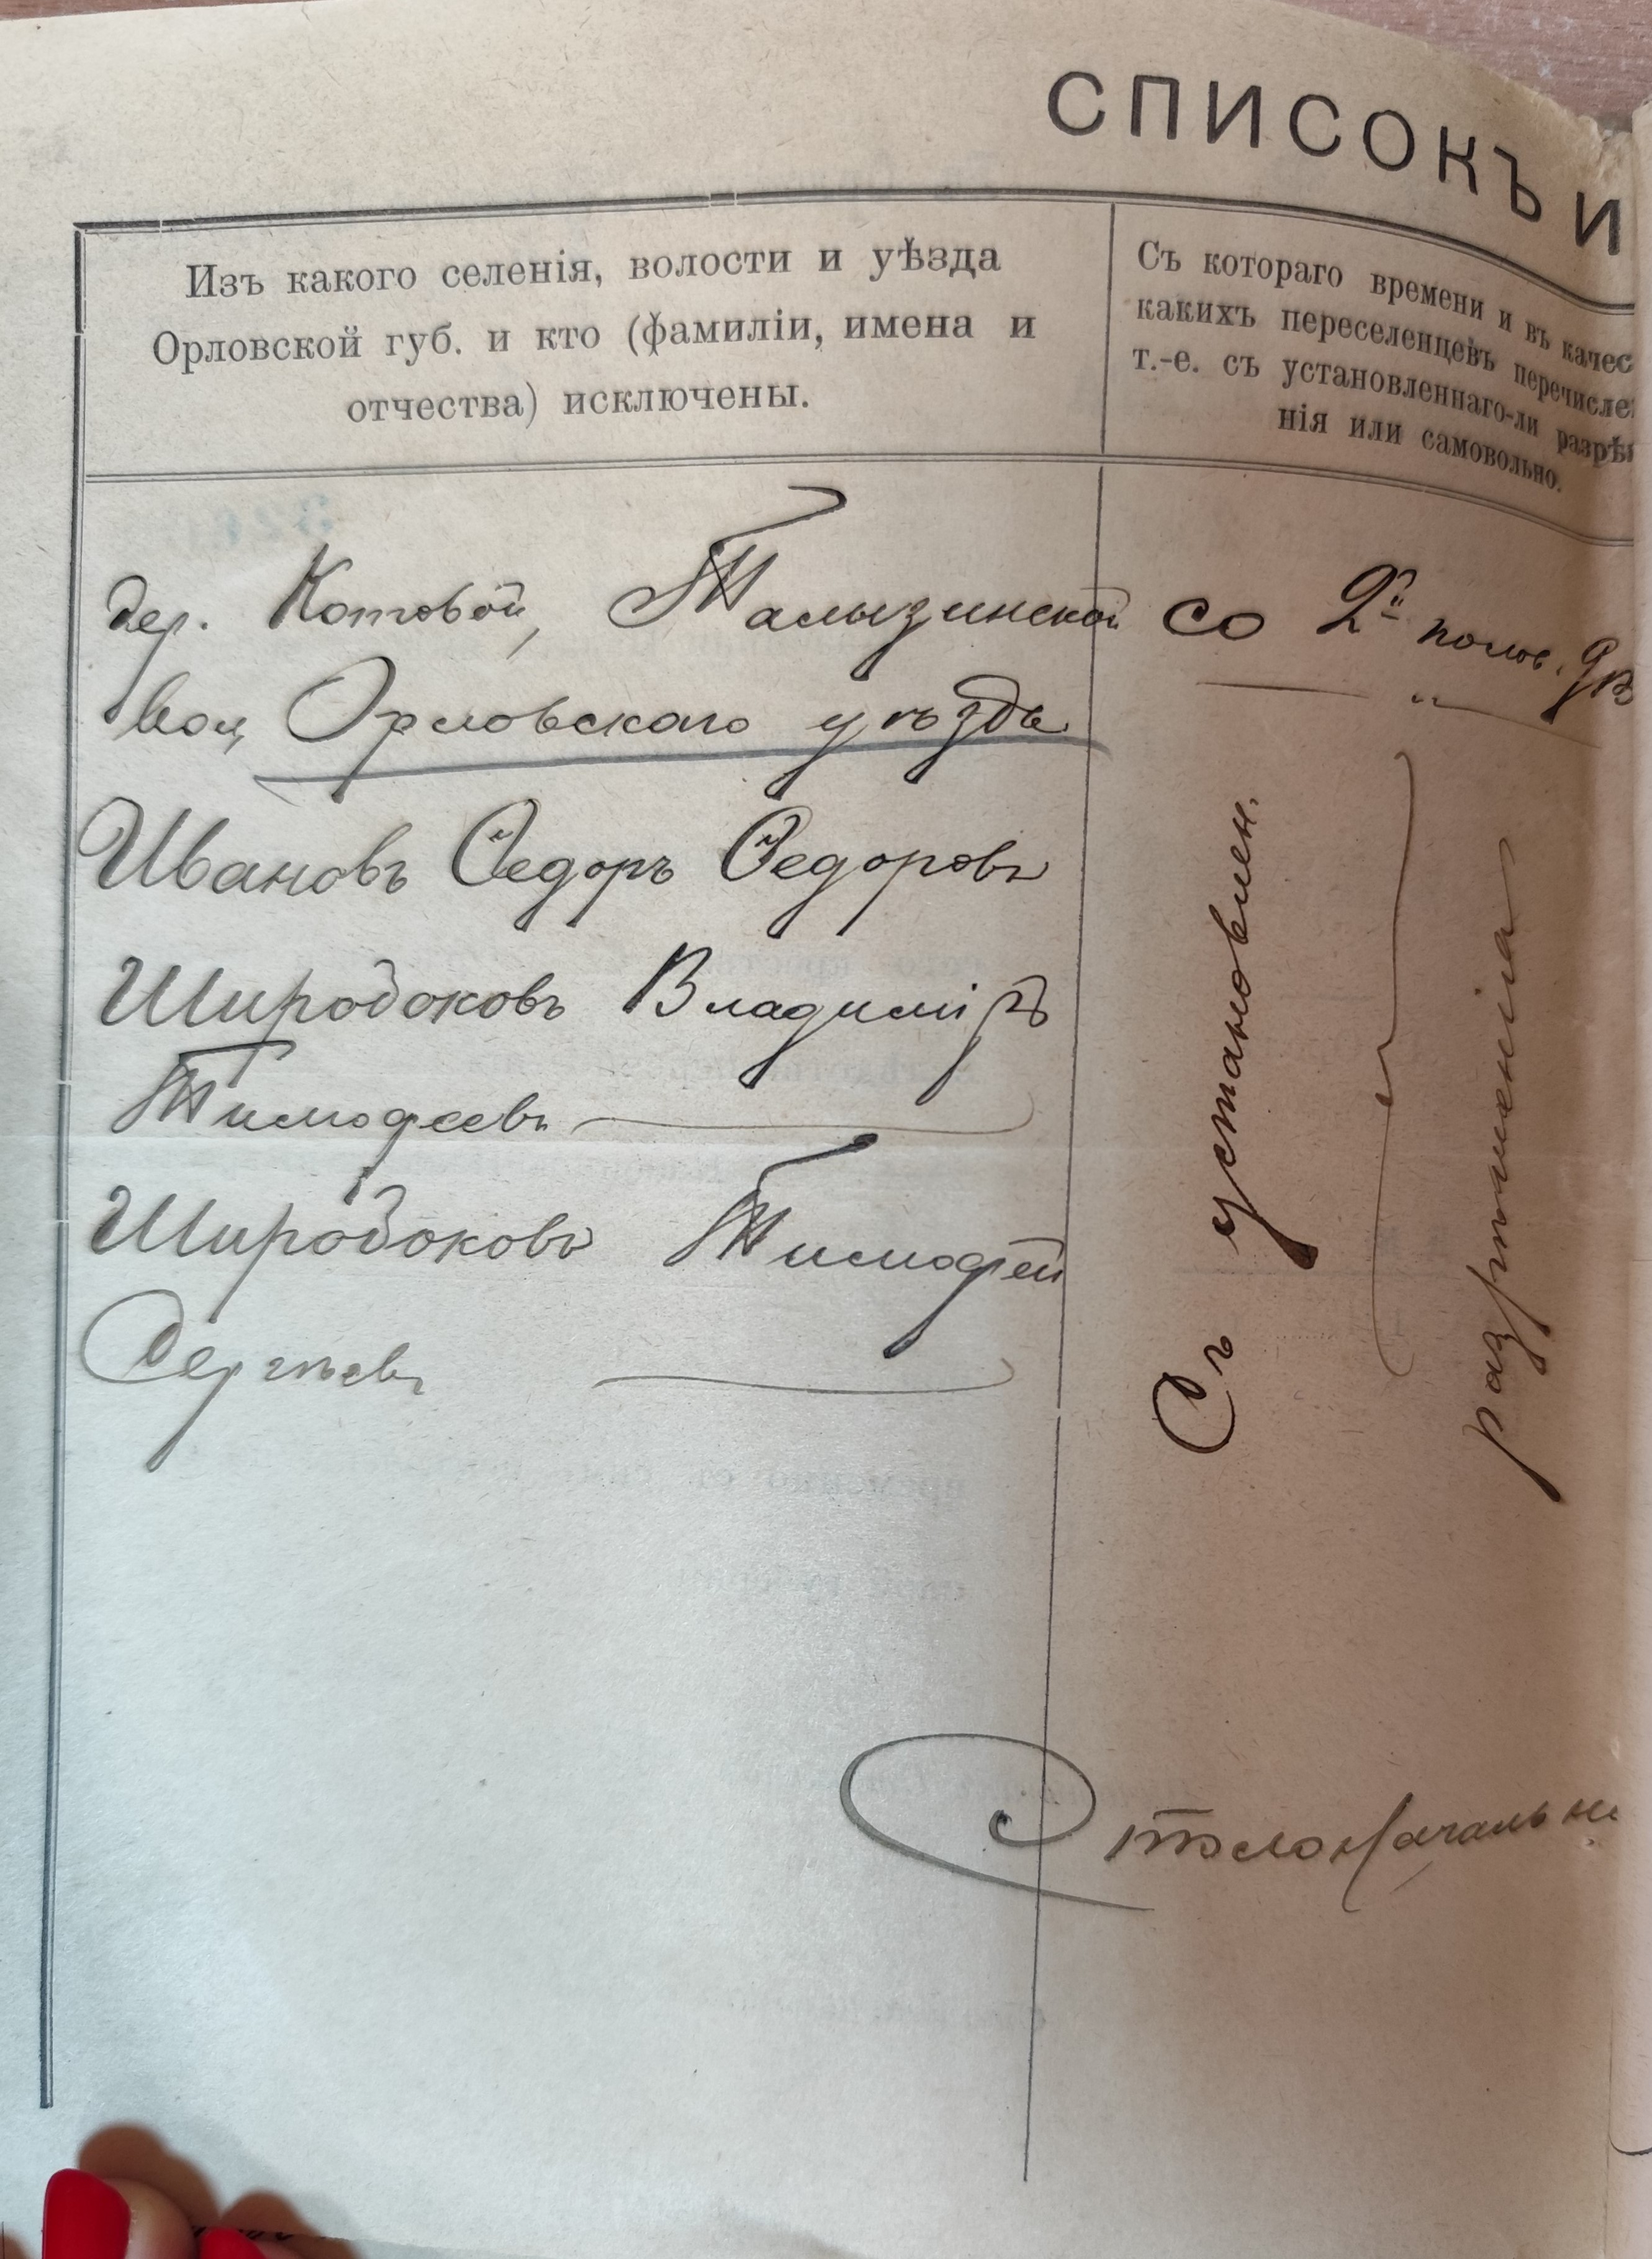 СПИСОКЪ И
Изъ какого селенія, волости и уѣзда
Орловской губ. и кто (фамиліи, имена и
отчества) исключены.
Съ котораго времени и въ качес
какихъ переселенцевъ перечисле
т.-е. съ установленнаго-ли разрѣ
нія или самовольно.
дер. Котовой, Талызинской
вол, Орловскаго уѣзда
Ивановъ Ѳедоръ Ѳедоровъ
Широбоковъ Владиміръ
Тимофеевъ
Широбоковъ Тимофей
Сергѣевъ
со 2й полов.
Съ установлен.
разрѣшенія
Столоначальни